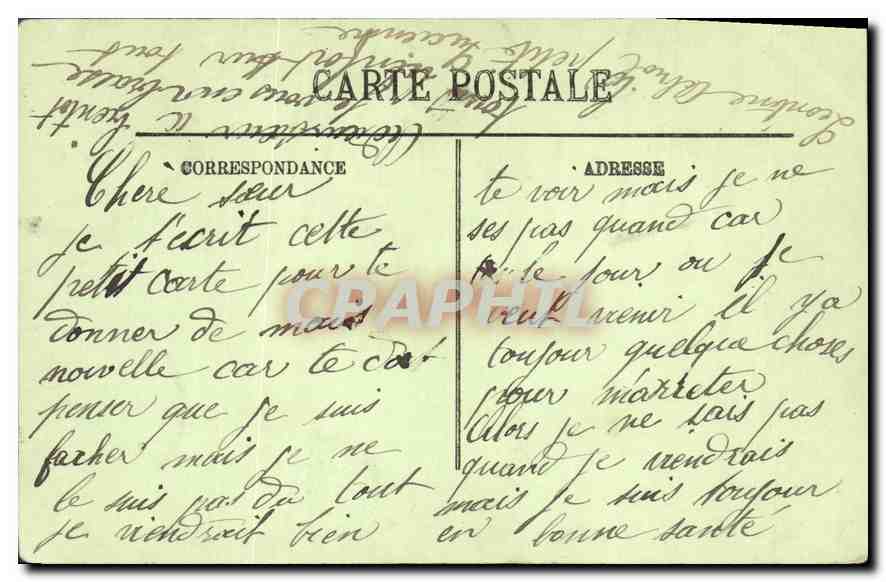 CARTE POSTALE
CORRESPONDANCE
Chère sœur
je t'ecrit cette
petit carte pour te
donner de mais
nouvelle car te doit
penser que je suis
facher mais je ne
le suis pas du tout
je viendrait bien
ADRESSE
te voir mais je ne
ses pas quand car
le jour ou je
veut vienir il y a
toujour quelque choses
pour m'arreter
Alors je ne sais pas
quand je viendrais
mais je suis toujour
en bonne santé
a bientot
je vous embrasse
tous bien fort
petite
Leontine
CPAPHIL